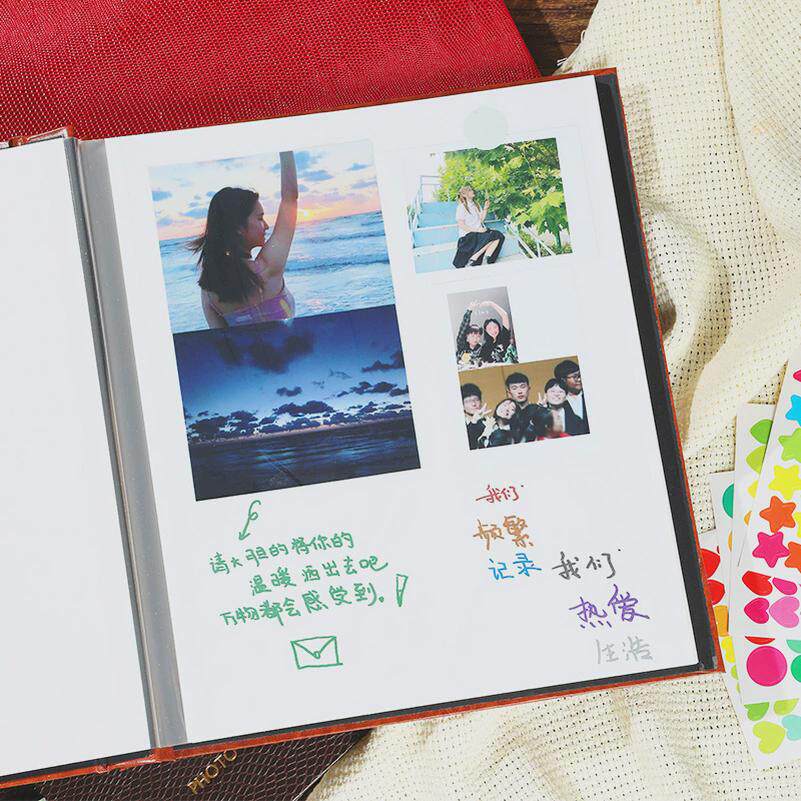 请大胆的将你的
温暖洒出去吧
万物都会感受到。
我们
频繁
记录
我们
热爱
生活
PHOTO